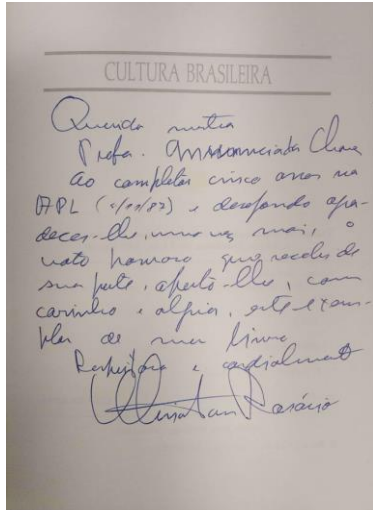 CULTURA BRASILEIRA
Querida mestra
Profa. Annunciada Chaves
Ao completar cinco anos na
APL (/87) e desejando agra-
decer-lhe, uma vez mais, o
voto honroso que recebi de
sua parte, oferto-lhe, com
carinho e alegria, este exem-
plar de meu livro
Respeitosa e cordialmente
Rosário